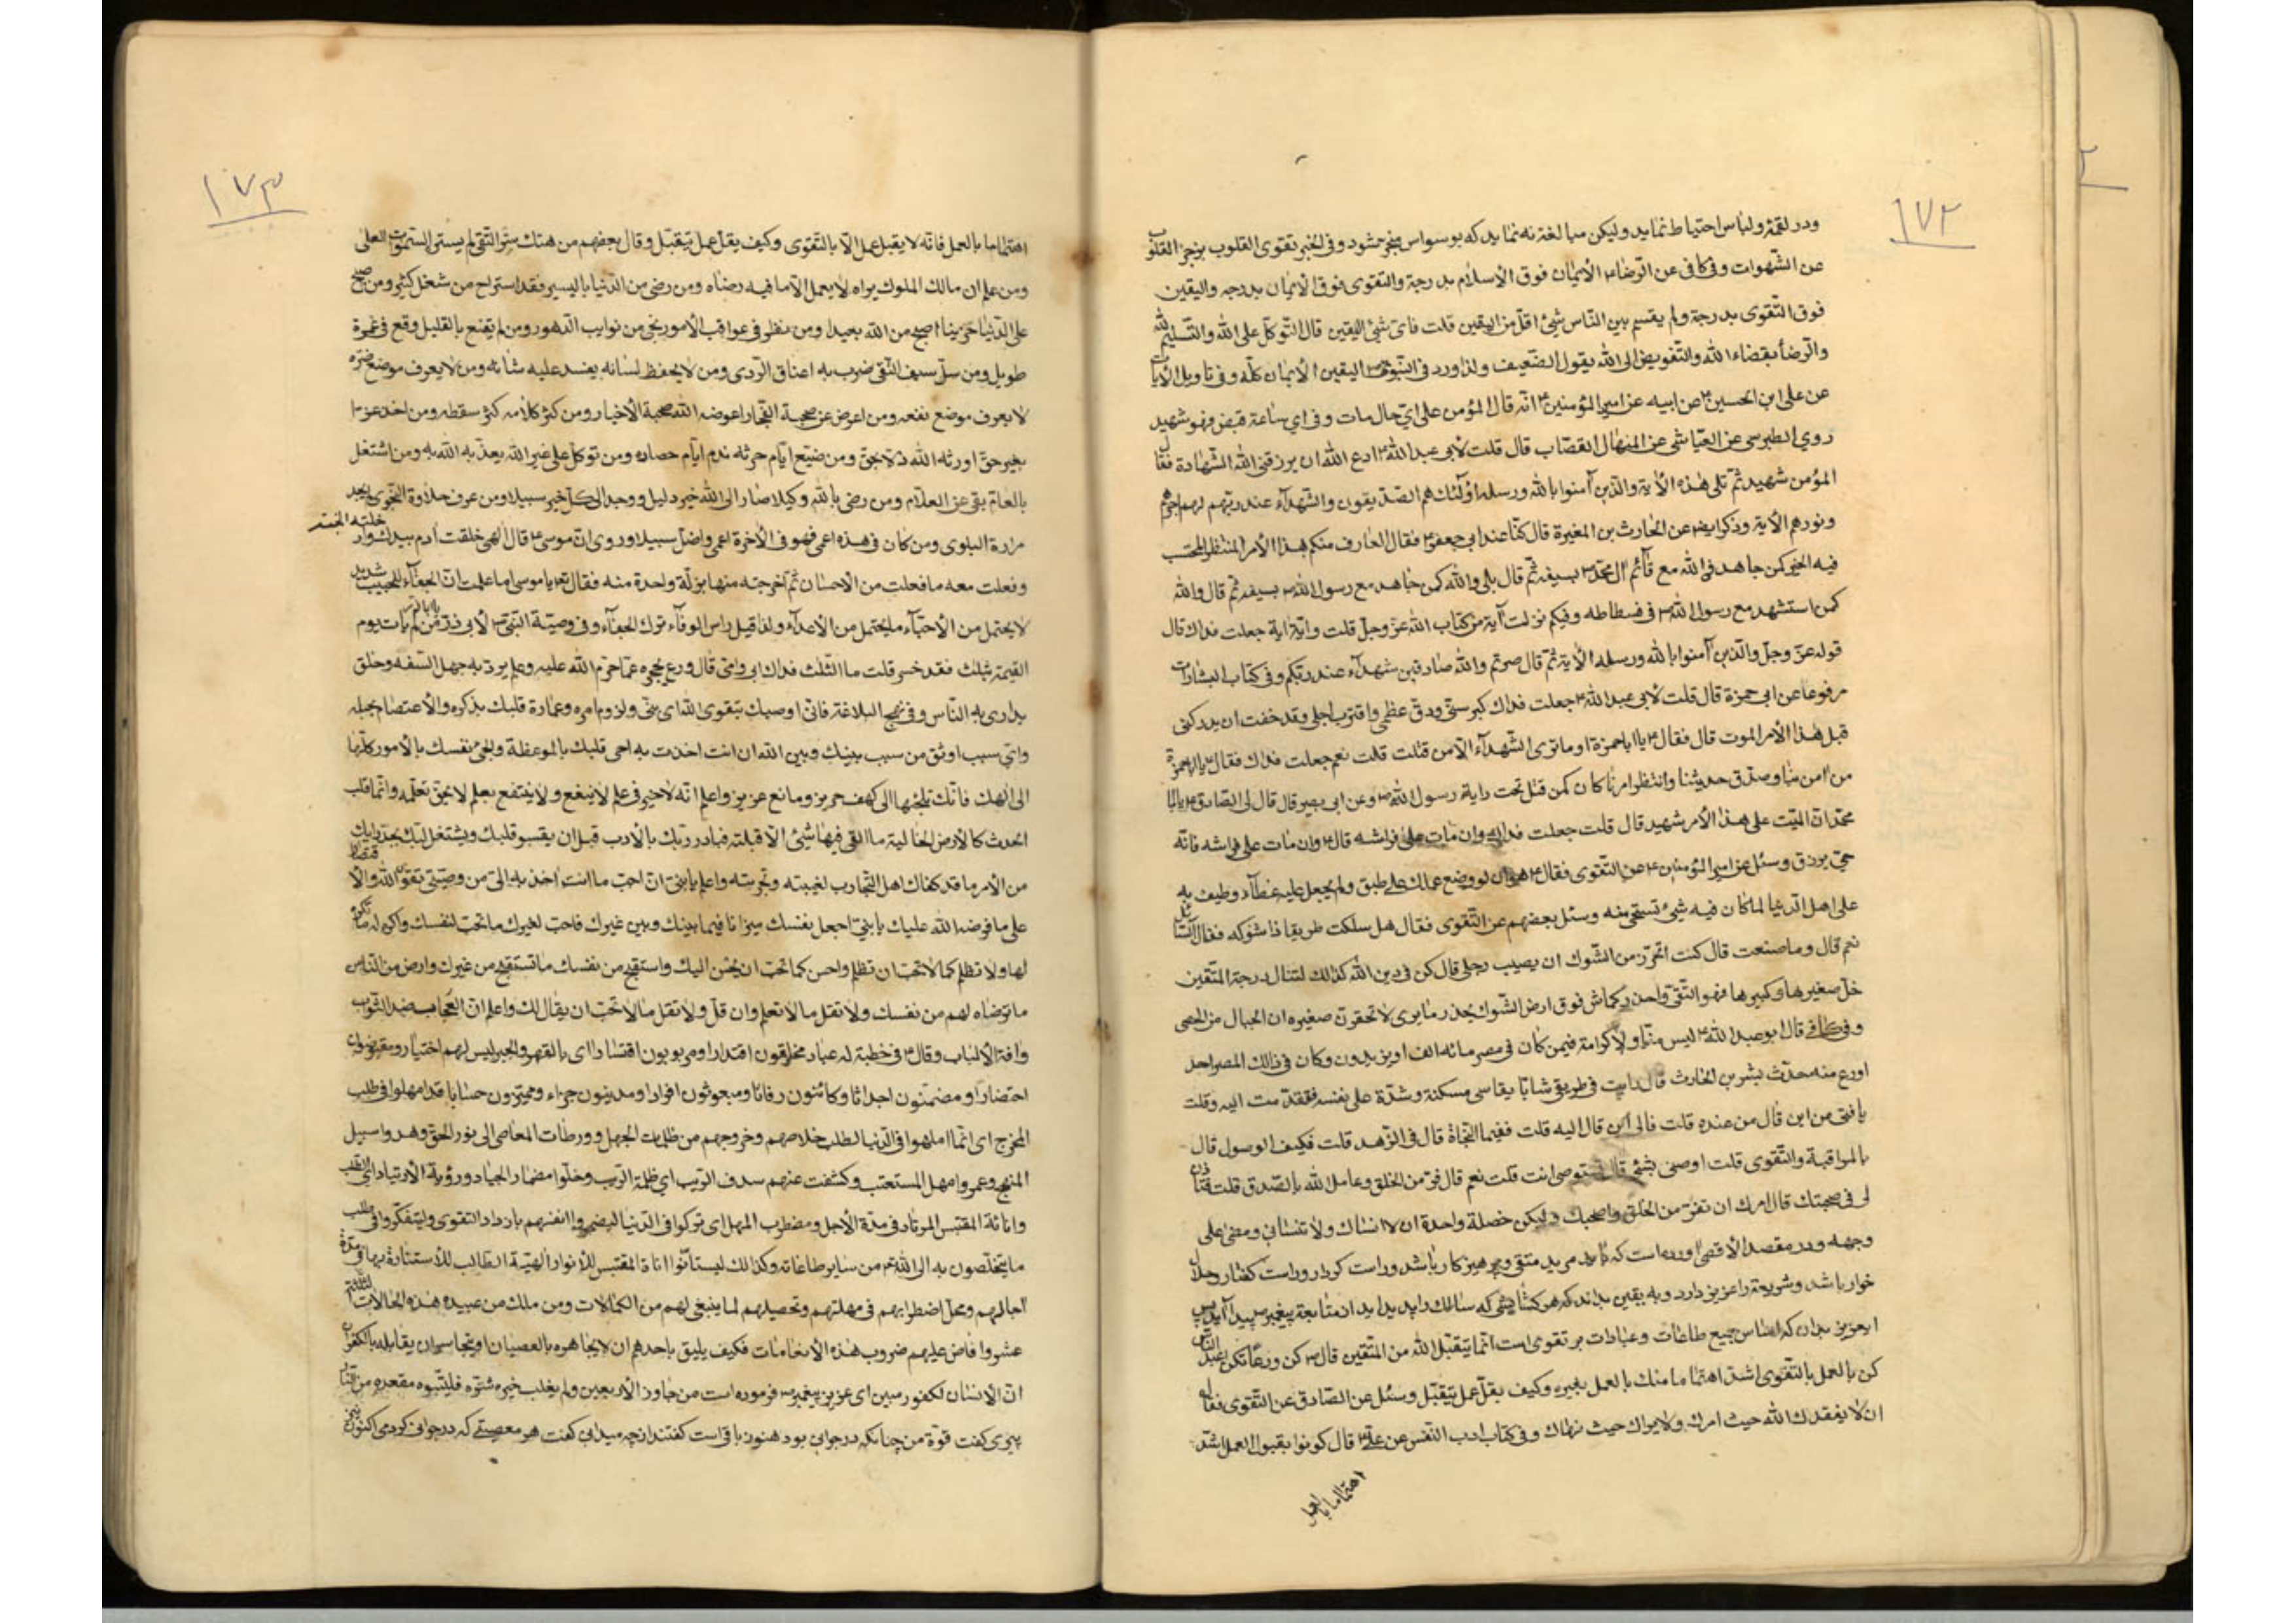 ١٧٢
ودر لقمه ولباس احتياط نمايد وليكن مبالغة نه نمايد كه بوسواس منجر مشود وفى الخبر تقوى القلوب يزجر القلوب
عن الشهوات وفى كافى عن الرضا ع الأيمان فوق الأسلام بدرجة والتقوى فوق الأيمان بدرجه واليقين
فوق التقوى بدرجة ولم يقسم بين الناس شئ اقل من اليقين قلت فاى شئ اليقين قال التوكل على الله والتسليم لله
والرضا بقضاء الله والتفويض الى الله يقول الضعيف ولذا ورد فى النبوى ص اليقين الأيمان كله وفى تاويل الأيات
عن على ابن الحسين ع عن ابيه عن امير المؤمنين ع انه قال المؤمن على اي حال مات وفى اي ساعة قبض فهو شهيد
روي الطبرسى عن العياشى عن المنهال القصاب قال قلت لأبى عبد الله ع ادع الله ان يرزقنى الله الشهادة فقال
المؤمن شهيد ثم تلى هذه الأية والذين آمنوا بالله ورسله اولئك هم الصديقون والشهدآء عند ربهم لهم اجرهم
ونورهم الأية وذكر ايضا عن الحارث بن المغيرة قال كنا عند ابى جعفر ع فقال العارف منكم هذا الأمر المنتظر المحتسب
فيه الخير كمن جاهد فى الله مع قآئم آل محمد ص بسيفه ثم قال بلى والله كمن جاهد مع رسول الله ص بسيفه ثم قال والله
كمن استشهد مع رسول الله ص فى فسطاطه وفيكم نزلت آية من كتاب الله عز وجل قلت واية آية جعلت فداك قال
قوله عز وجل والذين آمنوا بالله ورسله الأية ثم قال صرتم والله صادقين شهدآء عند ربكم وفى كتاب البشارات
مرفوعا عن ابى حمزة قال قلت لأبى عبد الله ع جعلت فداك كبر سنى ودق عظمى واقترب اجلى وقد خفت ان يدركنى
قبل هذا الأمر الموت قال فقال ع يا ابا حمزة او ما ترى الشهدآء الا من قتلت قلت نعم جعلت فداك فقال ع يا ابا حمزة
من آمن بنا وصدق حديثنا وانتظر امرنا كان كمن قتل تحت راية رسول الله ص وعن ابى بصير قال قال لى الصادق ع يا ابا
محمد ان الميت على هذا الأمر شهيد قال قلت جعلت فداك وان مات على فراشه قال ع وان مات على فراشه فانه
حى يرزق وسئل عن امير المؤمنين ع عن التقوى فقال ع هو ان لو وضع عملك على طبق ولم يجعل عليه غطآء وطيف به
على اهل الدنيا لما كان فيه شئ تستحى منه وسئل بعضهم عن التقوى فقال هل سلكت طريقا ذا شوكه فقال السائل
نعم قال وما صنعت قال كنت اتحرز من الشوك ان يصيب رجلى قال كن فى دين الله كذالك لتنال درجة المتقين
خل صغيرها وكبيرها فهو التقى واحذر كماش فوق ارض الشوك يحذر ما يرى لا تحقرن صغيره ان الجبال من الحصى
وفى كافے قال ابو عبد الله ع ليس منا ولا كرامة فيمن كان فى مصر مائه الف او يزيدون وكان فى ذالك المصر احد
اورع منه محدث بشر بن الحارث قال رايت فى طريق شابا يقاسى مسكنة وشدة على نفسه فتقدمت اليه وقلت
يا فتى من اين قال من عنده قلت فالى اين قال اليه قلت ففيما النجاة قال فى الزهد قلت فكيف الوصول قال
بالمراقبة والتقوى قلت اوصنى بشئ قال تستوصى انت قلت نعم قال فر من الخلق وعامل الله بالصدق قلت فتاذن
لى فى صحبتك قال امرك ان تفر من الخلق واصحبك وليكن خصلة واحدة ان لا انساك ولا تنسانى ومضى على
وجهه ودر مقصد الأقصى آورده است كه بايد مريد متقى وپرهيزكار باشد وراست كردار وراست گفتار وحلال
خوار باشد وشريعة را عزيز دارد وبه يقين بداند كه هر گشايشى كه سالك را پديد ايد از متابعة پيغمبر ص پيدا آيد پس
ايعزيز بدان كه اساس جميع طاعات وعبادات بر تقوى است انما يتقبل الله من المتقين قال ص كن ورعا تكن اعبد الناس
كن بالعمل بالتقوى اشد اهتماما منك بالعمل بغيره وكيف يقل عمل يتقبل وسئل عن الصادق عن التقوى فقال
ان لا يفقدك الله حيث امرك ولا يراك حيث نهاك وفى كتاب ادب النفس عن على ع قال كونوا بقبول العمل اشد
اهتماما بالعمل
١٧٣
اهتماما بالعمل فانه لا يقبل عمل الا بالتقوى وكيف يقل عمل يتقبل وقال بعضهم من هتك ستر التقى لم يستر السموات العلى
ومن علم ان مالك الملوك يراه لا يعمل الا ما فيه رضاه ومن رضى من الدنيا باليسير فقد استراح من شغل كثير ومن اصبح
على الدنيا حزينا اصبح من الله بعيدا ومن نظر فى عواقب الأمور نجى من نوايب الدهور ومن لم يقنع بالقليل وقع فى غمرة
طويل ومن سل سيف التقى ضرب به اعناق الردى ومن لا يحفظ لسانه يفسد عليه شانه ومن لا يعرف موضع ضره
لا يعرف موضع نفعه ومن اعرض عن صحبة الفجار اعوضه الله صحبة الأخيار ومن كثر كلامه كثر سقطه ومن اخذ عزا
بغير حق اورثه الله ذلا بحق ومن ضيع ايام حرثه ندم ايام حصاده ومن توكل على غير الله يعذبه الله به ومن اشتغل
بالعالم بقى عن العلام ومن رضى بالله وكيلا صار الى الله خير دليل ووجد الى كل خير سبيلا ومن عرف حلاوة النجوى لم يجد
مرارة البلوى ومن كان فى هذه اعمى فهو فى الأخرة اعمى واضل سبيلا وروى ان موسى ع قال الهى خلقت آدم بيدك
وفعلت معه ما فعلت من الأحسان ثم اخرجته منها بزلة واحدة منه فقال تع يا موسى اما علمت ان الجفآء للحبيب شديد
لا يحتمل من الأحبآء ما يحتمل من الأعدآء ولذا قيل راس الوفآء ترك الجفآء وفى وصية النبى ص لأبى ذر من لم يات يوم
القيمة بثلث فقد خسر قلت ما الثلث فداك ابى وامى قال ورع يحجزه عما حرم الله عليه وحلم يرد به جهل السفه وخلق
يدارى به الناس وفى نهج البلاغة فانى اوصيك بتقوى الله اى بنى ولزوم امره وعمارة قلبك بذكره والأعتصام بحبله
واى سبب اوثق من سبب بينك وبين الله ان انت اخذت به احى قلبك بالموعظة والجئ نفسك بالأمور كلها
الى الهك فانك تلجئها الى كهف حريز ومانع عزيز واعلم انه لا خير فى علم لا ينفع ولا ينتفع بعلم لا يحق تعلمه وانما قلب
الحدث كالأرض الخالية ما القى فيها شئ الا قبلته فبادر ربك بالأدب قبل ان يقسو قلبك ويشتغل لبك
من الأمر ما قد كفاك اهل التجارب لغيبته وتجربته واعلم يا بنى ان احب ما انت اخذ به الى من وصيتى تقوى الله والأقتصار
على ما فرضه الله عليك يا بنى اجعل نفسك ميزانا فيما بينك وبين غيرك فاحب لغيرك ما تحب لنفسك واكره له ما تكره
لها ولا تظلم كما لا تحب ان تظلم واحسن كما تحب ان يحسن اليك واستقبح من نفسك ما تستقبح من غيرك وارض من الناس
ما ترضاه لهم من نفسك ولا تقل ما لا تعلم وان قل ولا تقل ما لا تحب ان يقال لك واعلم ان العجاب ضد الثواب
وافة الألباب وقال ع فى خطبة له عباد مخلوقون اقتدارا ومربوبون اقتسارا اى بالقهر والجبر ليس لهم اختيار ومقبوضون
احتضارا ومضمنون اجداثا وكائنون رفاتا ومبعوثون افرادا ومدينون جزاء ومميزون حسابا قد امهلوا فى طلب
المخرج اى انما امهلوا فى الدنيا لطلب خلاصهم وخروجهم من ظلمات الجهل وورطات المعاصى الى نور الحق وهدوا سبيل
المنهج وعمروا مهل المستعتب وكشفت عنهم سدف الريب اي ظلمة الريب وخلوا مضمار الجياد وروية الأرتياد
واناثة المقتبس المرتاد فى مدة الأجل ومضطرب المهل اى تركوا فى الدنيا ليضمروا انفسهم بازدياد التقوى وليتفكروا فى طلب
ما يتخلصون به الى الله تع من ساير طاعاته وكذالك ليستانوا اناة المقتبس للأنوار الهية الطالب للأستنارة بها فى مدة
آجالهم ومحل اضطرابهم فى مهلتهم وتحصيلهم لما ينبغى لهم من الكمالات ومن ملك من عبيده هذه الحالات
عشروا فاض عليهم ضروب هذه الأنعامات فكيف يليق باحدهم ان لا يجاهره بالعصيان او يتجاسر ان يقابله بالكفران
ان الأنسان لكفور مبين اى عزيز پيغمبر ص فرموده است من جاوز الأربعين ولم يغلب خيره شره فليتبوء مقعده من النار
پيرى گفت قوة من چنانكه در جوانى بود هنوز باقى است گفتند از چه ميدانى گفت هر معصيتے كه در جوانى كردمى اكنون نيز